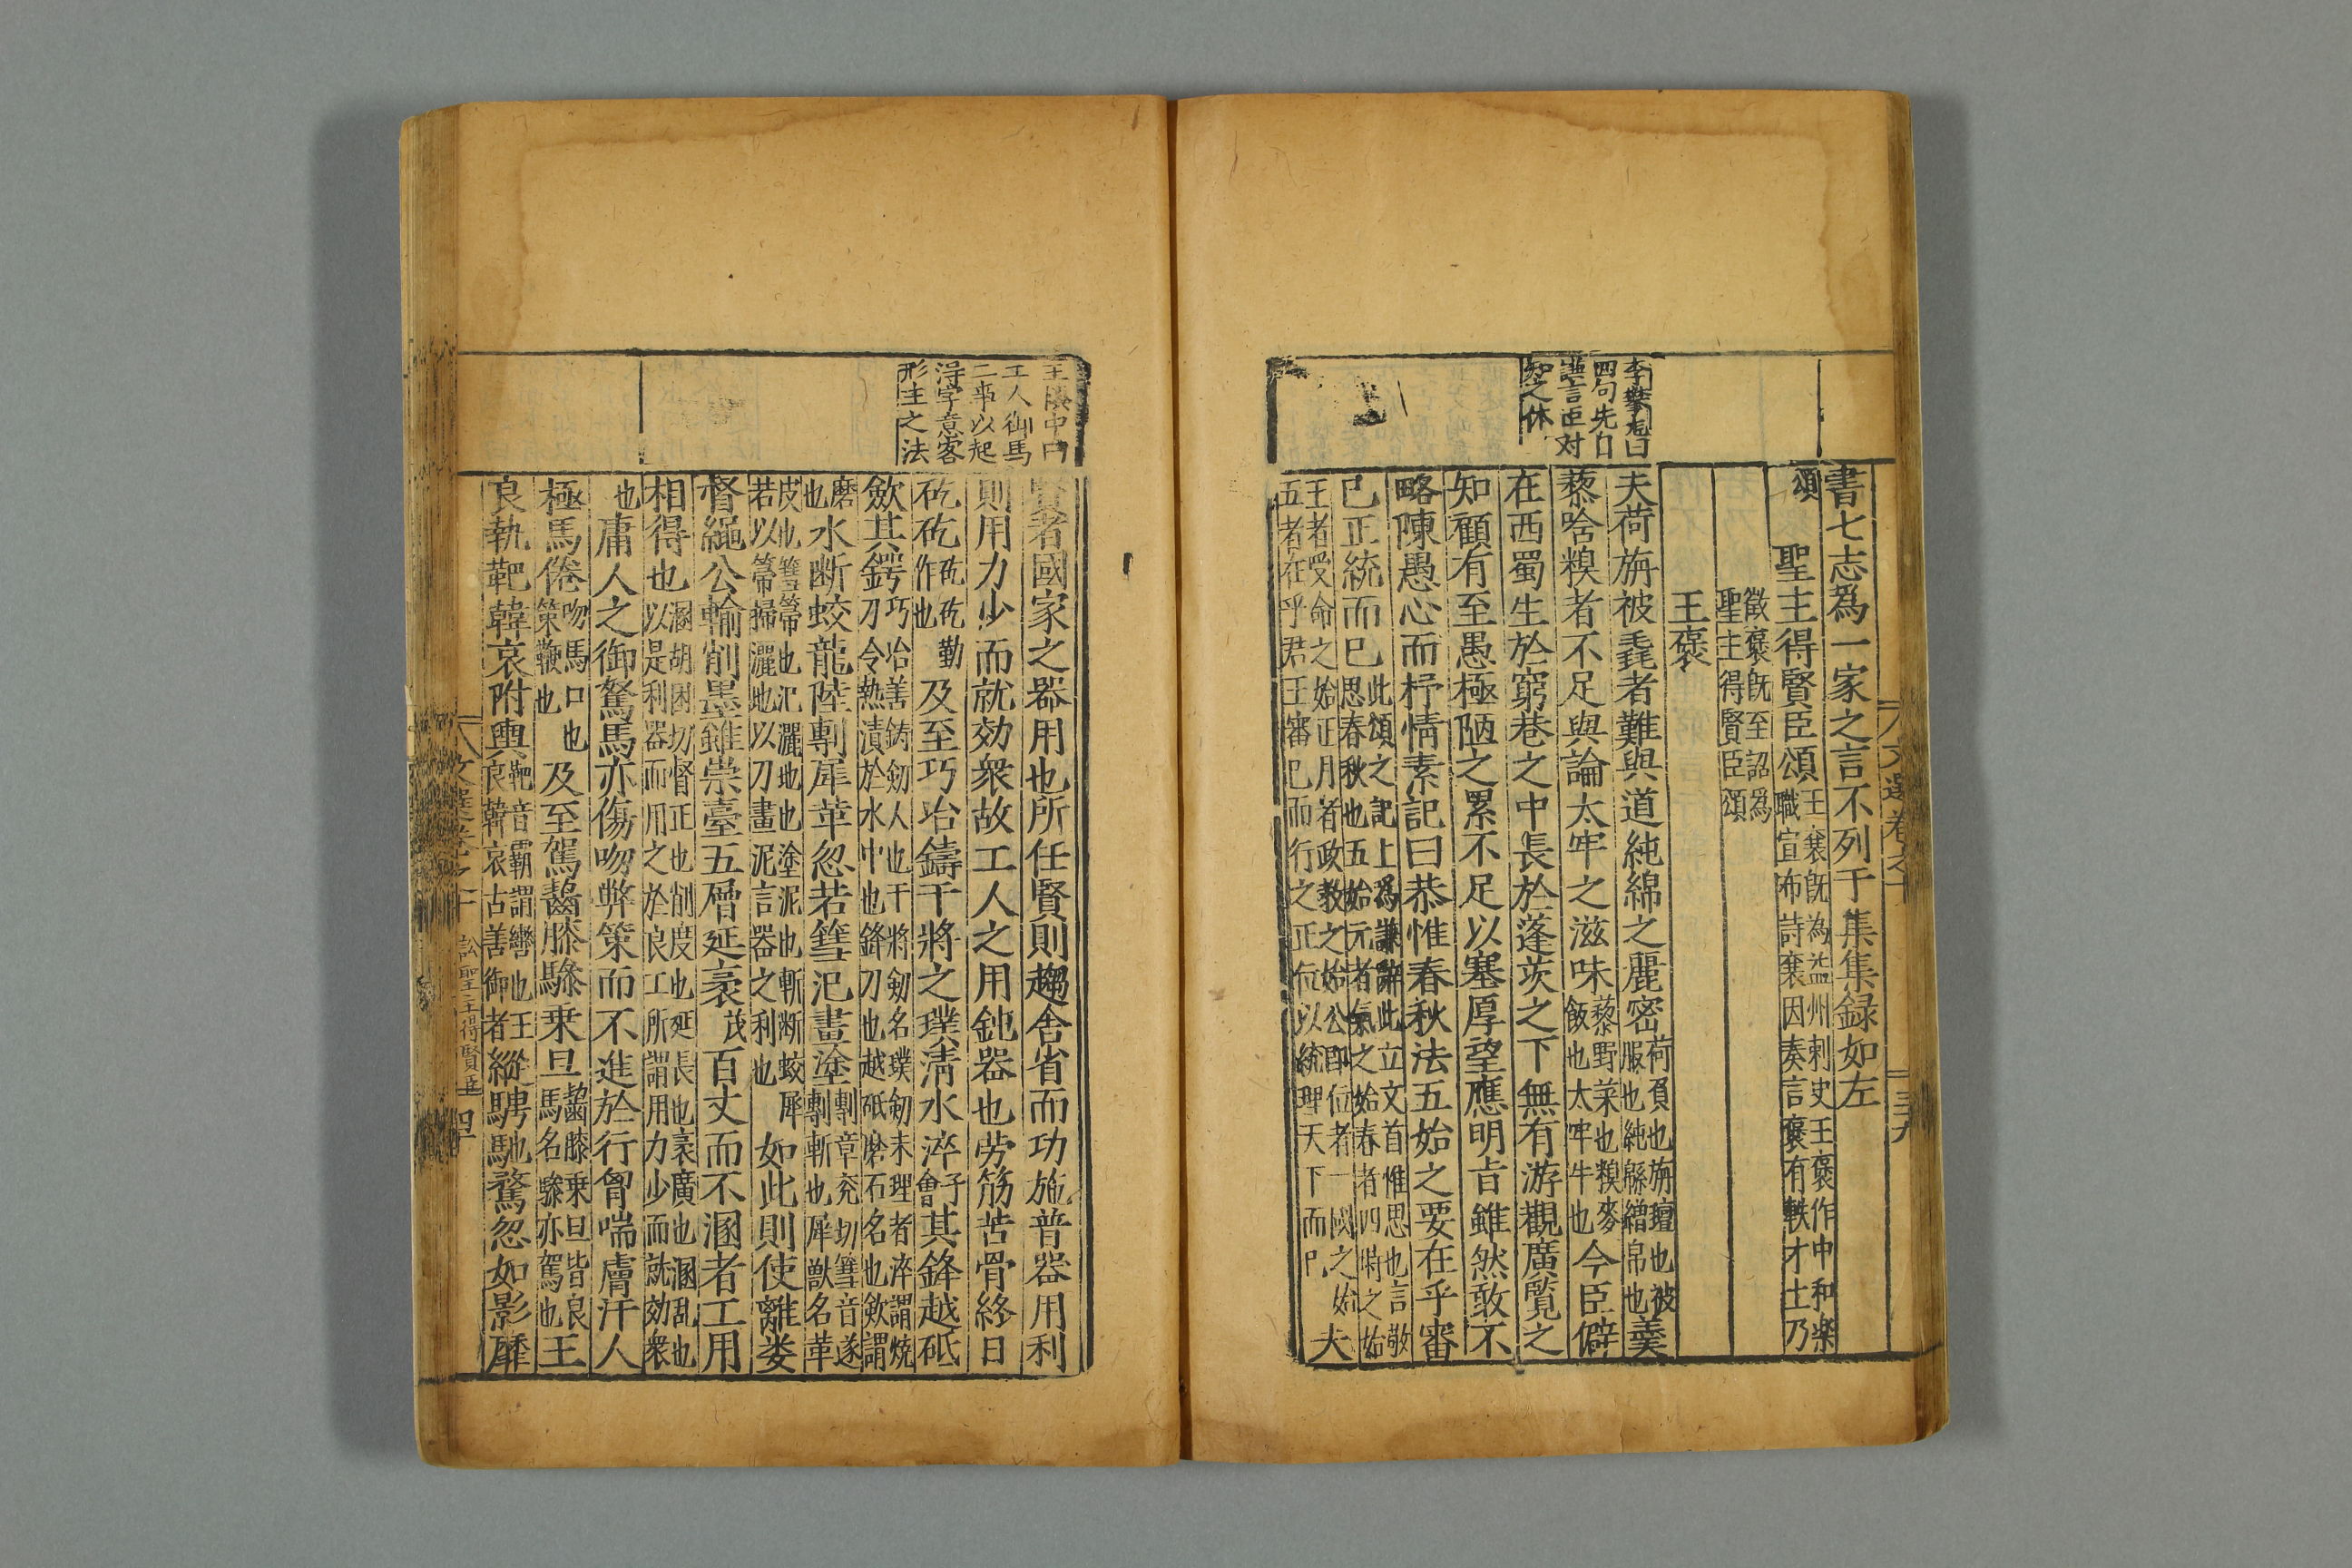 李樂卷曰
四句先自
謙言正对
知之休
書七志爲一家之言不列于集集録如左
頌
聖主得賢臣頌王襃既為益州刺史王褒作中和樂
職宣布詩襃因奏言褒有軼才士乃
徵褒既至詔為
聖主得賢臣頌
王褒
夫荷旃被毳者難與道純綿之麗密荷負也旃氊也被
服也純緜繒帛也羹
藜唅糗者不足與論太牢之滋味藜野菜也糗麥
飯也太牢牛也今臣僻
在西蜀生於窮巷之中長於蓬茨之下無有游觀廣覽之
知顧有至愚極陋之累不足以塞厚望應明旨雖然敢不
略陳愚心而杼情素記曰恭惟春秋法五始之要在乎審
己正統而巳此頌之記上爲謙辭此立文首惟思也言敬
思春秋也五始元者氣之始春者四時之始
王者受命之始正月者政教之始公即位者一國之始
五者在乎君王審已而行之正位以統理天下而巳夫
文選卷之十
三十九
王漢中曰
工人御馬
二事以起
浔字意客
形主之法
賢者國家之器用也所任賢則趨舍省而功施普器用利
則用力少而就効衆故工人之用鈍器也勞筋苦骨終日
矻矻矻矻勤
作也及至巧冶鑄干將之璞清水淬子會其鋒越砥
歛其鍔巧冶善鋳劒人也干將劒名璞劒未理者淬謂燒
刀令熱漬於水中也鋒刀也越砥磨石名也歛謂
磨
也水断蛟龍陸剸犀革忽若篲汜畫塗剸章兖切篲音遂
剸斬也犀獸名革
皮也篲箒也汜灑地也塗泥也斬断蛟犀
若以箒掃灑地以刀畫泥言器之利也如此則使離娄
督繩公輸削墨雖崇臺五層延袤茂百丈而不溷者工用
相得也溷胡困切督正也削度也延長也袤廣也溷乱也
以是利器而用之於良工所謂用力少而就効衆
也庸人之御駑馬亦傷吻弊策而不進於行胷喘膚汗人
極馬倦吻馬口也
策鞭也及至駕齧膝驂乗旦齧膝乗旦皆良
馬名驂亦駕也王
良執靶韓哀附輿靶音霸謂轡也王
良韓哀古善御者縱騁馳騖忽如影靡
文選卷之十
訟聖主得賢臣
四十